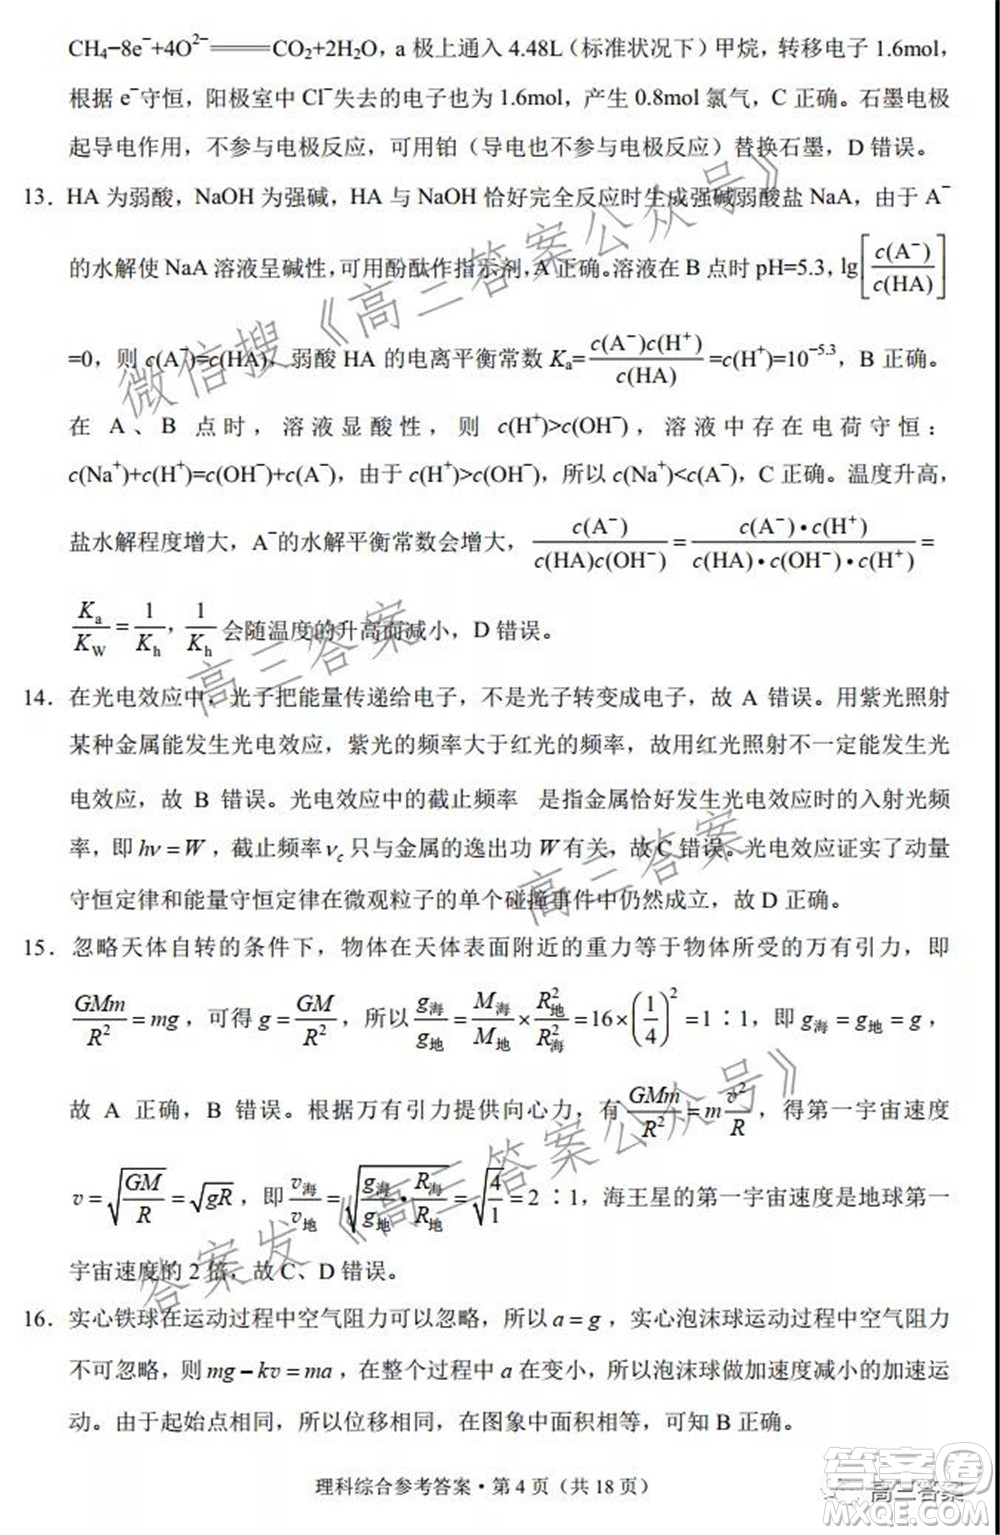 CH₄−8e⁻+4O²⁻═══CO₂+2H₂O，a 极上通入 4.48L（标准状况下）甲烷，转移电子 1.6mol，
根据 e⁻守恒，阳极室中 Cl⁻失去的电子也为 1.6mol，产生 0.8mol 氯气，C 正确。石墨电极
起导电作用，不参与电极反应，可用铂（导电也不参与电极反应）替换石墨，D 错误。
13．HA 为弱酸，NaOH 为强碱，HA 与 NaOH 恰好完全反应时生成强碱弱酸盐 NaA，由于 A⁻
的水解使 NaA 溶液呈碱性，可用酚酞作指示剂，A 正确。溶液在 B 点时 pH=5.3，lg[c(A⁻)/c(HA)]
=0，则 c(A⁻)=c(HA)，弱酸 HA 的电离平衡常数 Kₐ=c(A⁻)c(H⁺)/c(HA)=c(H⁺)=10⁻⁵·³，B 正确。
在 A、B 点时，溶液显酸性，则 c(H⁺)>c(OH⁻)，溶液中存在电荷守恒：
c(Na⁺)+c(H⁺)=c(OH⁻)+c(A⁻)，由于 c(H⁺)>c(OH⁻)，所以 c(Na⁺)<c(A⁻)，C 正确。温度升高，
盐水解程度增大，A⁻的水解平衡常数会增大，c(A⁻)/c(HA)c(OH⁻)=c(A⁻)•c(H⁺)/c(HA)•c(OH⁻)•c(H⁺)=
Kₐ/K_W=1/K_h，1/K_h 会随温度的升高而减小，D 错误。
14．在光电效应中，光子把能量传递给电子，不是光子转变成电子，故 A 错误。用紫光照射
某种金属能发生光电效应，紫光的频率大于红光的频率，故用红光照射不一定能发生光
电效应，故 B 错误。光电效应中的截止频率 是指金属恰好发生光电效应时的入射光频
率，即 hν=W，截止频率ν_c 只与金属的逸出功 W 有关，故 C 错误。光电效应证实了动量
守恒定律和能量守恒定律在微观粒子的单个碰撞事件中仍然成立，故 D 正确。
15．忽略天体自转的条件下，物体在天体表面附近的重力等于物体所受的万有引力，即
GMm/R²=mg，可得 g=GM/R²，所以 g海/g地=M海/M地×R地²/R海²=16×(1/4)²=1∶1，即 g海=g地=g，
故 A 正确，B 错误。根据万有引力提供向心力，有 GMm/R²=m v²/R，得第一宇宙速度
v=√(GM/R)=√(gR)，即 v海/v地=√(g海/g地•R海/R地)=√(4/1)=2∶1，海王星的第一宇宙速度是地球第一
宇宙速度的 2 倍，故 C、D 错误。
16．实心铁球在运动过程中空气阻力可以忽略，所以 a=g，实心泡沫球运动过程中空气阻力
不可忽略，则 mg−kv=ma，在整个过程中 a 在变小，所以泡沫球做加速度减小的加速运
动。由于起始点相同，所以位移相同，在图象中面积相等，可知 B 正确。
理科综合参考答案·第 4 页（共 18 页）
微信搜《高三答案公众号》
高三答案
高三答案
答案发《高三答案公众号》
高三答案
答案圈
MXQE.COM